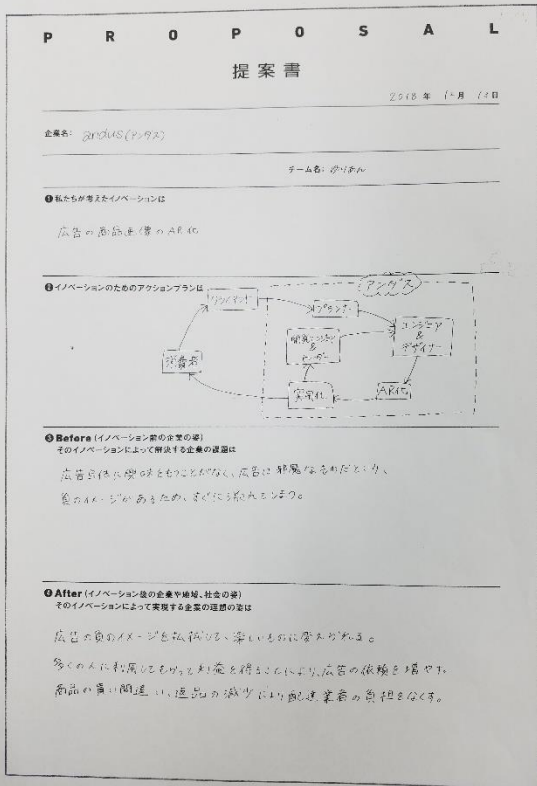 PROPOSAL
提案書
2018年 12月 12日
企業名: andus(アンダス)
チーム名: ゆりあん
❶私たちが考えたイノベーションは
広告の商品画像のAR化
❷イノベーションのためのアクションプランは
アンダス
クライアント
プランナー
エンジニア
&
デザイナー
&
消費者
実装化
AR化
❸Before(イノベーション前の企業の姿)
そのイノベーションによって解決する企業の課題は
広告自体に興味をもつことがなく、広告は邪魔なものだという、
負のイメージがあるため、すぐに流れてしまう。
❹After(イノベーション後の企業や地域、社会の姿)
そのイノベーションによって実現する企業の理想の姿は
広告の負のイメージを払拭して、楽しいものに変えられる。
多くの人に利用してもらって利益を得ることにより、広告の依頼を増やす。
商品の買い間違い、返品の減少により配達業者の負担をなくす。